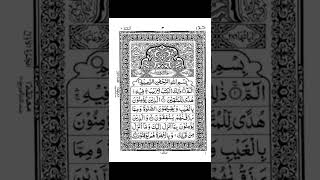 بِسْمِ اللهِ الرَّحْمٰنِ الرَّحِيْمِ
الٓمّٓ ۚ ذٰلِكَ الْكِتٰبُ لَا رَيْبَ ۛ فِيْهِ ۛ
هُدًى لِّلْمُتَّقِيْنَ ۙ الَّذِيْنَ يُؤْمِنُوْنَ
بِالْغَيْبِ وَيُقِيْمُوْنَ الصَّلٰوةَ وَمِمَّا
رَزَقْنٰهُمْ يُنْفِقُوْنَ ۙ وَالَّذِيْنَ
يُؤْمِنُوْنَ بِمَآ اُنْزِلَ اِلَيْكَ وَمَآ اُنْزِلَ
مِنْ قَبْلِكَ ۚ وَبِالْاٰخِرَةِ هُمْ يُوْقِنُوْنَ